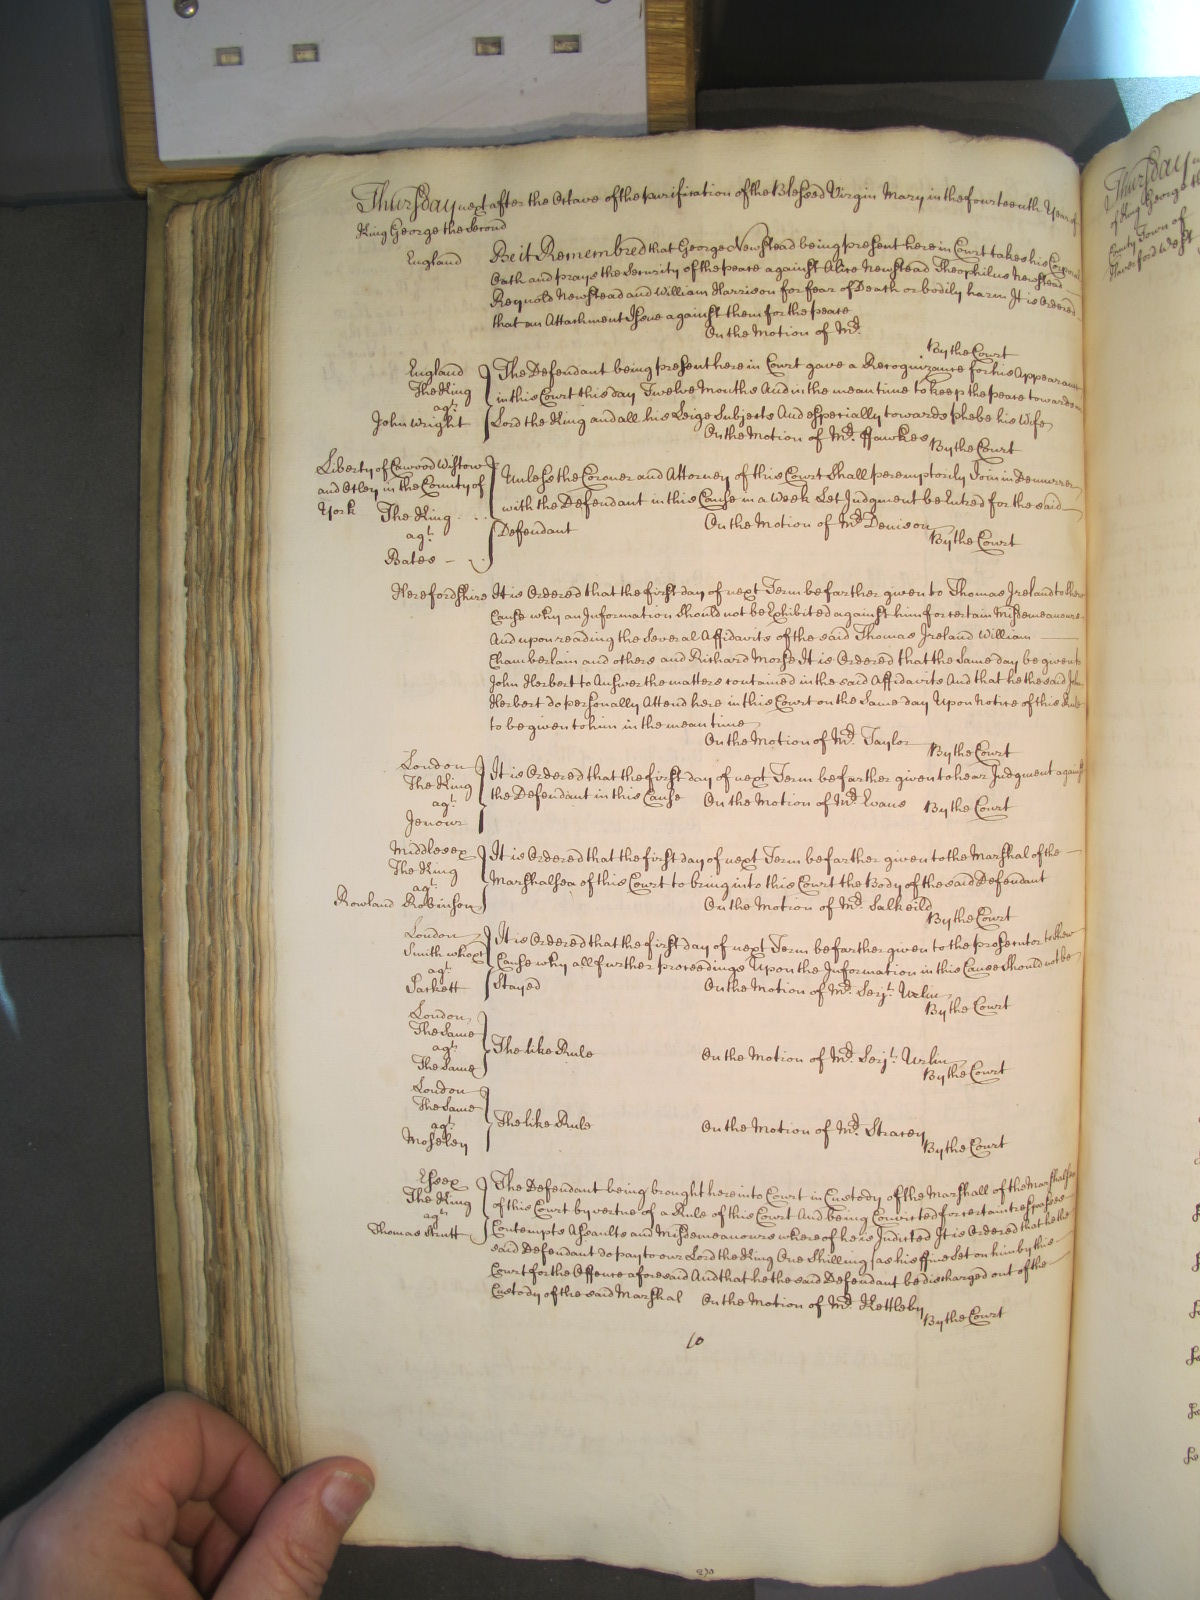 Thursday next after the Octave of the purification of the Blessed Virgin Mary in the fourteenth Year of
King George the Second
England Be it Remembred that George Newstead being present here in Court takes his Corporal
Oath and prays the Security of the peace against Alice Newstead Theophilus Newstead
Reynold Newstead and William Harrison for fear of Death or bodily harm It is Ordered
that an Attachment Issue against them for the peace
On the Motion of Mr.
By the Court
England The Defendant being present here in Court gave a Recognizance for his Appearance
The King in this Court this day Twelve Months And in the mean time to keep the peace towards
agt. Lord the King and all his Leige Subjects And especially towards phebe his Wife
John Wright On the Motion of Mr. Fawkes By the Court
Liberty of Cawood Wistow Unless the Coroner and Attorney of this Court Shall peremptorily Join in Demurrer
and Otley in the County of with the Defendant in this Cause in a Week Let Judgment be Entred for the said
York The King Defendant On the Motion of Mr. Denison
agt. By the Court
Bates
Herefordshire It is Ordered that the first day of next Term be farther given to Thomas Ireland to shew
Cause why an Information should not be Exhibited against him for certain Misdemeanours
And upon reading the Several Affidavits of the said Thomas Ireland William
Chamberlain and others and Richard Morse It is Ordered that the Same day be given to
John Herbert to Answer the matters contained in the said Affidavits And that he the said John
Herbert do personally Attend here in this Court on the Same day Upon Notice of this Rule
to be given to him in the mean time
On the Motion of Mr. Taylor By the Court
London It is Ordered that the first day of next Term be farther given to hear Judgment against
The King the Defendant in this Cause On the Motion of Mr. Evans By the Court
agt.
Jenour
Middlesex It is Ordered that the first day of next Term be farther given to the Marshal of the
The King Marshalsea of this Court to bring into this Court the Body of the said Defendant
agt.
Rowland Robinson On the Motion of Mr. Salkeild
By the Court
London It is Ordered that the first day of next Term be farther given to the prosecutor to shew
Smith who &ct Cause why all further proceedings Upon the Information in this Cause Should not be
agt.
Sackett Stayed On the Motion of Mr. Serjt. Urlin
By the Court
London
The Same
agt. The like Rule On the Motion of Mr. Serjt. Urlin
The Same By the Court
London
The Same
agt. The like Rule On the Motion of Mr. Stracey
Moseley By the Court
Essex The Defendant being brought here into Court in Custody of the Marshall of the Marshalsea
The King of this Court by vertue of a Rule of this Court And being Convicted for certain trespasses
agt.
Thomas Strutt Contempts Assaults and Misdemeanours whereof he is Indicted It is Ordered that he the
said Defendant do pay to our Lord the King One Shilling as his ffine Set on him by this
Court for the Offence aforesaid And that he the said Defendant be discharged out of the
Custody of the said Marshal On the Motion of Mr. Kettleby
By the Court
10
Thursday
of King George
County Town of
Haverford West